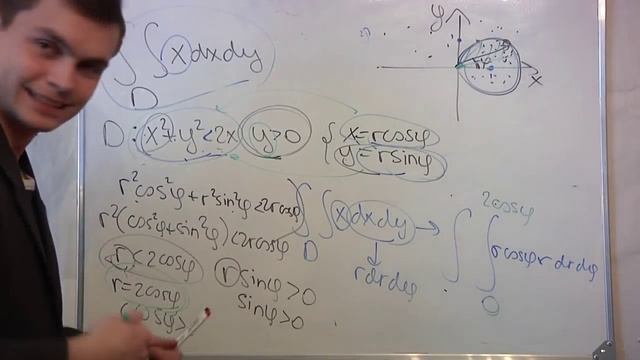 ∫∫ x dx dy
D
y
x
D: x²+y²<2x y>0 { x=rcosφ
y=rsinφ
r²cos²φ+r²sin²φ<2rcosφ
r²(cos²φ+sin²φ)<2rcosφ
r<2cosφ
r=2cosφ
cosφ>
rsinφ>0
sinφ>0
∫∫ x dx dy → ∫ ∫ rcosφ r dr dφ
D
r dr dφ
2cosφ
0